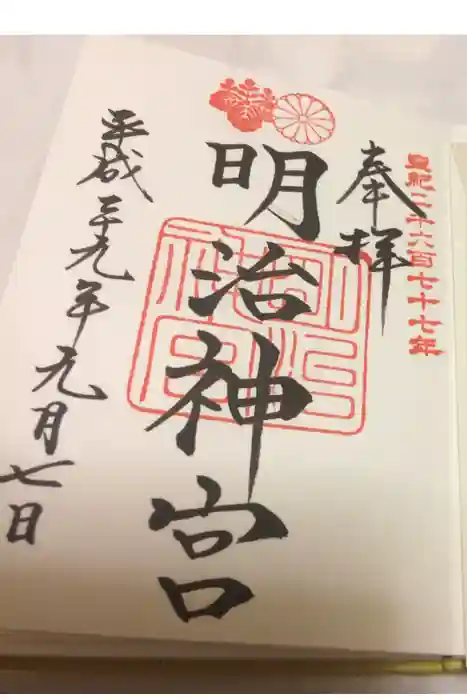 皇紀二千六百七十七年
奉拝
明治神宮
明治
神宮
平成二十九年九月七日